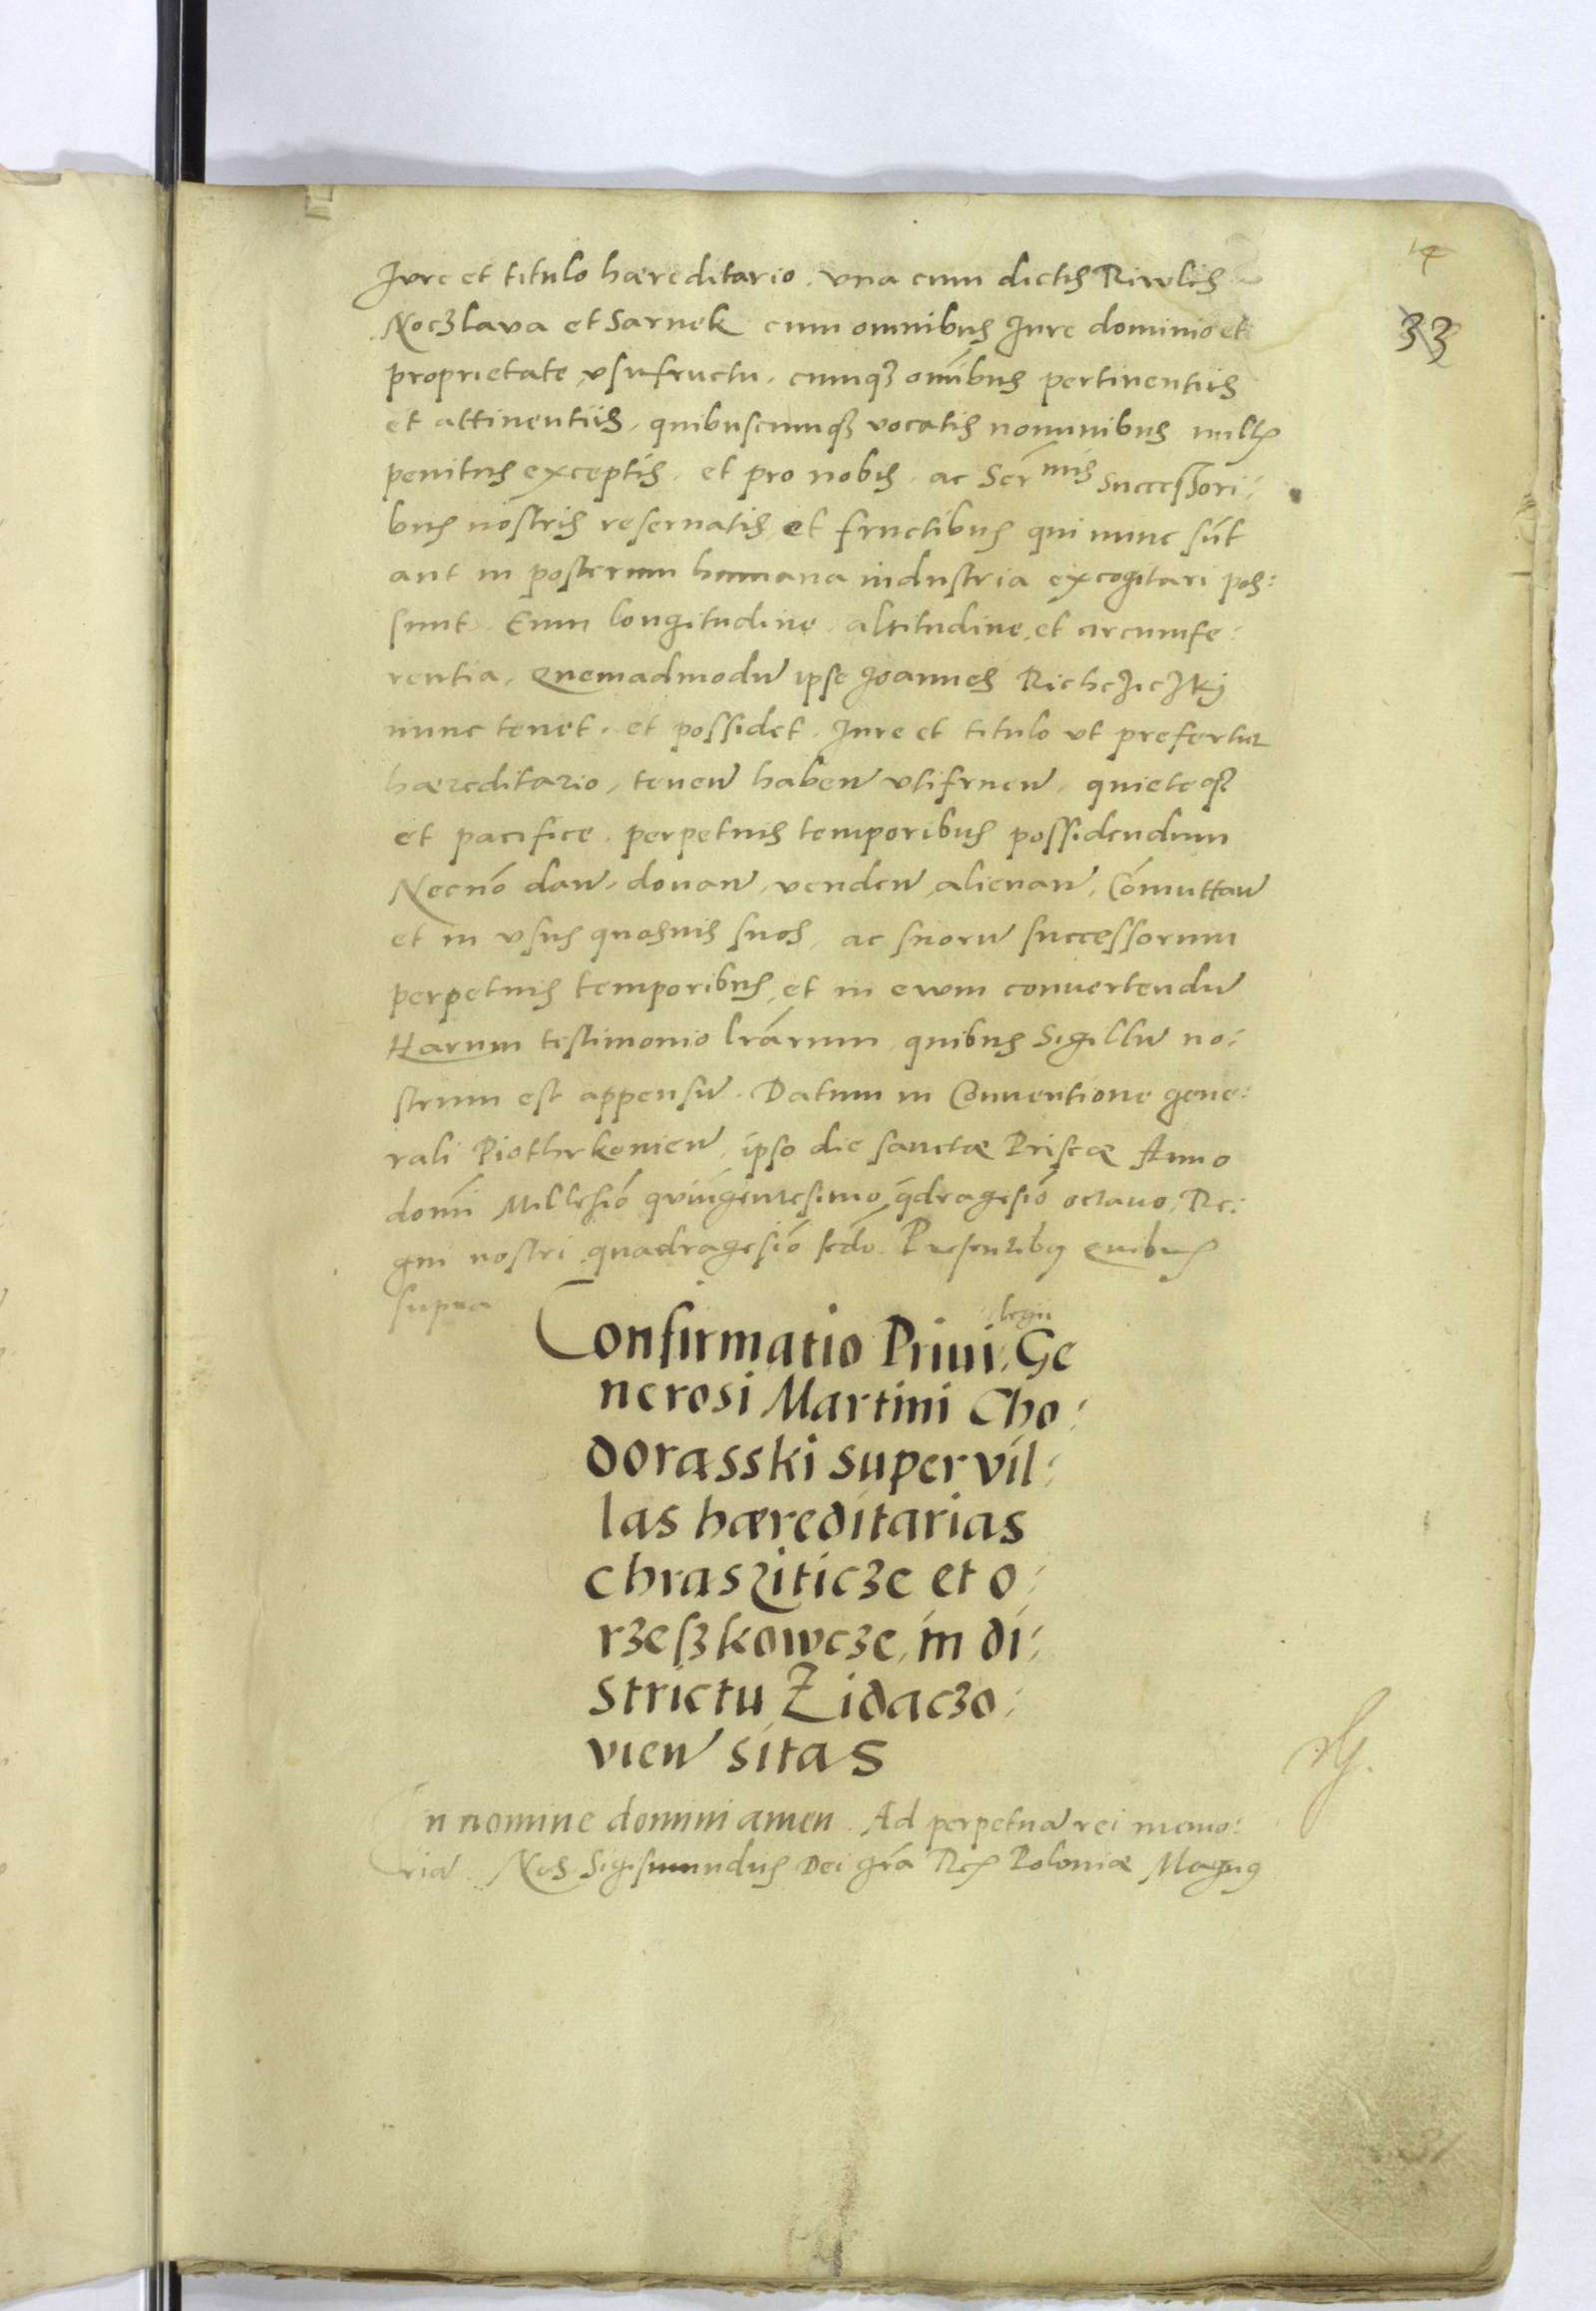 14
33
Jure et titulo hæreditario. vna cum dictis Riwlis
Noczlava et Sarnek cum omnibus Jure dominio et
proprietate, vsufructu. cumq3 omībus pertinentiis
et attinentiis, quibuscumq3 vocatis nominibus nullis
penitus exceptis. et pro nobis. ac Ser̄mis Successori:
bus nostris reseruatis, et fructibus qui nunc sūt
aut in posterum humana industria excogitari pos:
sunt. Cum longitudine. altitudine, et circumfe:
rentia, Quemadmodū ipse Joannes
nunc tenet. et possidet. Jure et titulo vt prefertur
hæreditario, tenen̄ haben̄ vtifruen̄. quieteq3
et pacifice. perpetuis temporibus possidendum
Necnō dan̄, donan̄, venden̄, alienan̄, Cōmuttan̄
et in vsus quosuis suos, ac suorū successorum
perpetuis temporibus, et in ewm conuertendū
Harum testimonio lrārum, quibus Sigillū no:
strum est appensū. Datum in Conuentione gene:
rali Piothrkouien̄, ipso die sanctæ Priscæ Anno
domī Millesiō quīngentesimo q̄dragesiō octauo, Re:
gni nostri quadragesiō scdō. Presentibus Quibus
supra
Confirmatio Priui,legii Ge
nerosi Martini Cho:
dorasski super vil:
las hæreditarias
chrasziticze et o:
rzeszkowcze, in di:
strictu Zidaczo:
vien̄ sitas
In nomine domini amen. Ad perpetuā rei memo:
riā. Nos Sigismundus Dei grā Rex Poloniæ Magnus